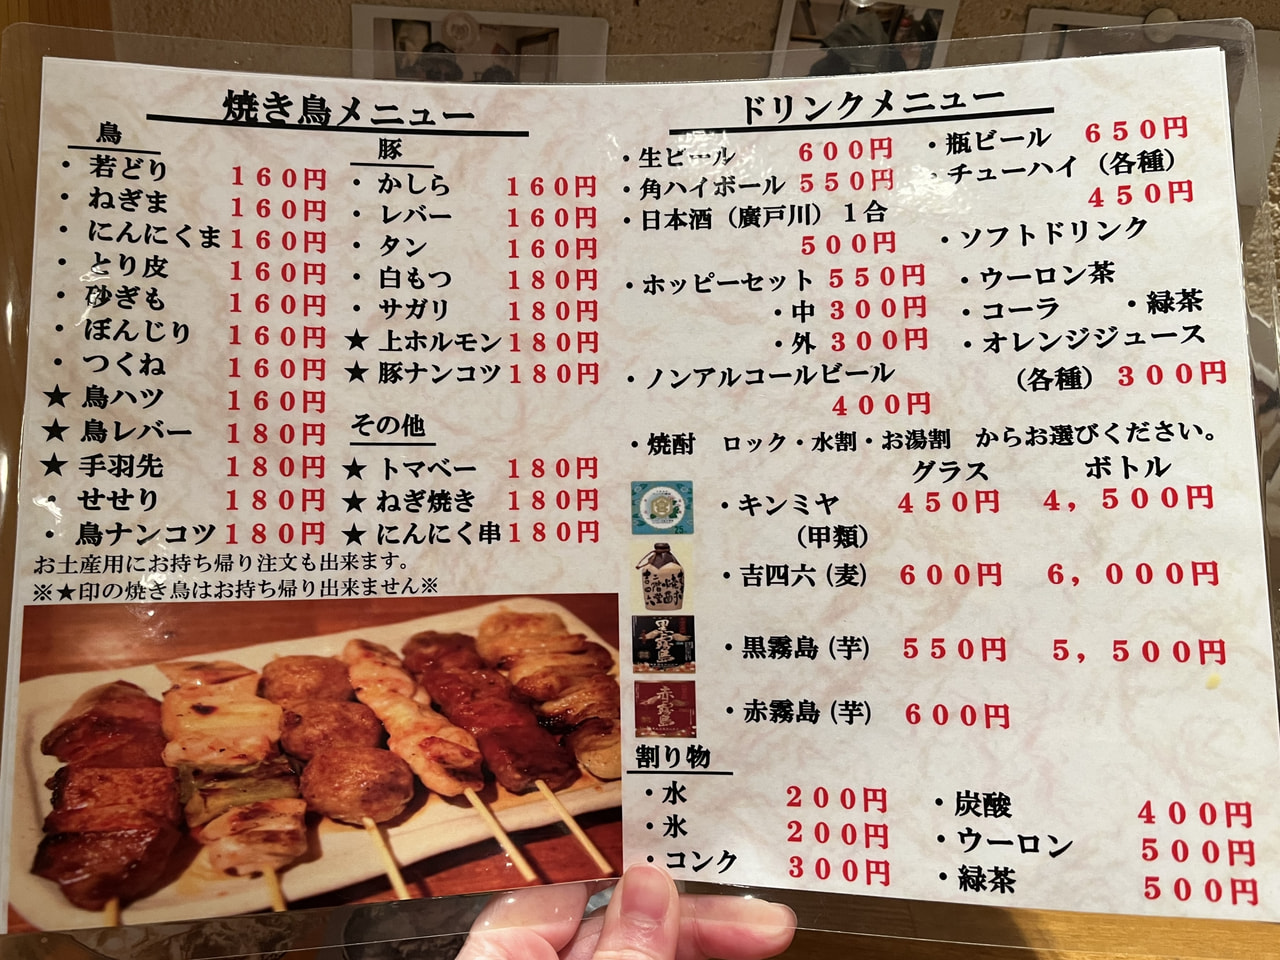 焼き鳥メニュー
鳥
・若どり 160円
・ねぎま 160円
・にんにくま 160円
・とり皮 160円
・砂ぎも 160円
・ぼんじり 160円
・つくね 160円
★鳥ハツ 160円
★鳥レバー 180円
★手羽先 180円
・せせり 180円
・鳥ナンコツ 180円
豚
・かしら 160円
・レバー 160円
・タン 160円
・白もつ 180円
・サガリ 180円
★上ホルモン 180円
★豚ナンコツ 180円
その他
★トマベー 180円
★ねぎ焼き 180円
★にんにく串 180円
お土産用にお持ち帰り注文も出来ます。
※★印の焼き鳥はお持ち帰り出来ません※
ドリンクメニュー
・生ビール 600円
・角ハイボール 550円
・日本酒（廣戸川）1合
500円
・ホッピーセット 550円
・中 300円
・外 300円
・ノンアルコールビール
400円
・瓶ビール 650円
・チューハイ（各種）
450円
・ソフトドリンク
・ウーロン茶
・コーラ ・緑茶
・オレンジジュース
（各種）300円
・焼酎 ロック・水割・お湯割 からお選びください。
グラス ボトル
・キンミヤ 450円 4,500円
（甲類）
・吉四六(麦) 600円 6,000円
・黒霧島(芋) 550円 5,500円
・赤霧島(芋) 600円
25
吉四六
二階堂
焼酎
黒霧島
赤霧島
割り物
・水 200円
・氷 200円
・コンク 300円
・炭酸 400円
・ウーロン 500円
・緑茶 500円